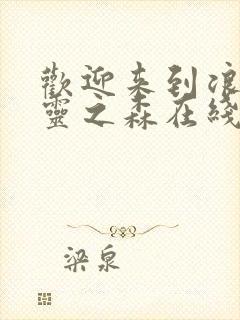 歡迎来到浪
靈之森在綫
梁泉